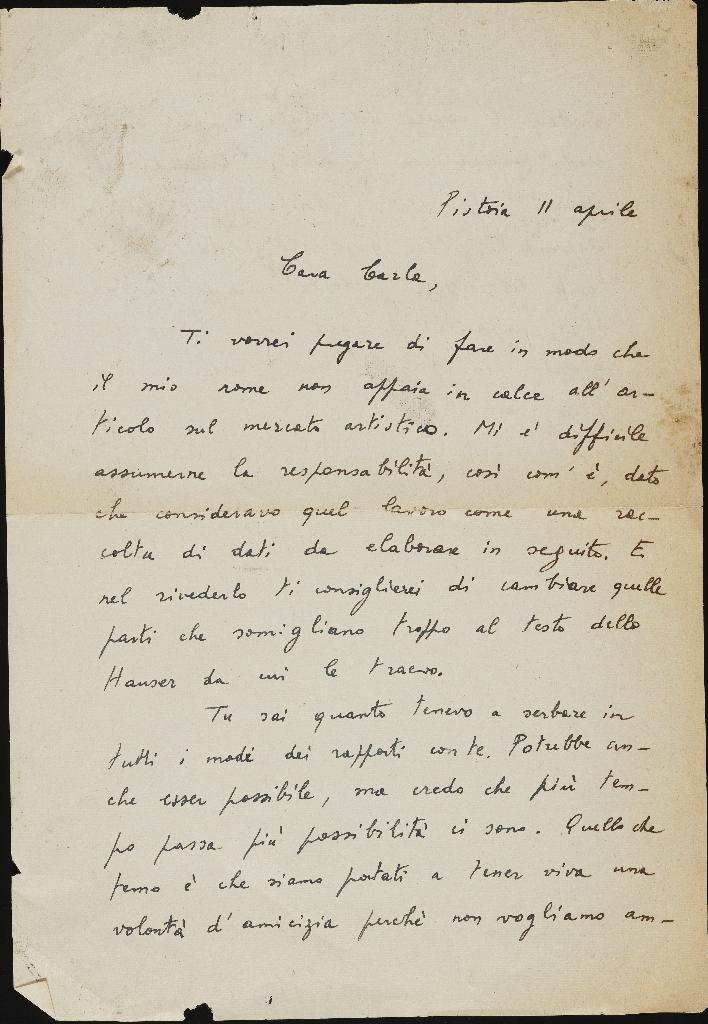 Pistoia 11 aprile
Cara Carla,
Ti vorrei pregare di fare in modo che
il mio nome non appaia in calce all'ar-
ticolo sul mercato artistico. Mi è difficile
assumerne la responsabilità, così com'è, dato
che consideravo quel lavoro come una rac-
colta di dati da elaborare in seguito. E
nel rivederlo ti consiglierei di cambiare quelle
parti che somigliano troppo al testo dello
Hauser da cui le traevo.
Tu sai quanto tenevo a serbare in
tutti i modi dei rapporti con te. Potrebbe an-
che esser possibile, ma credo che più tem-
po passa più possibilità ci sono. Quello che
temo è che siamo portati a tener viva una
volontà d'amicizia perchè non vogliamo am-